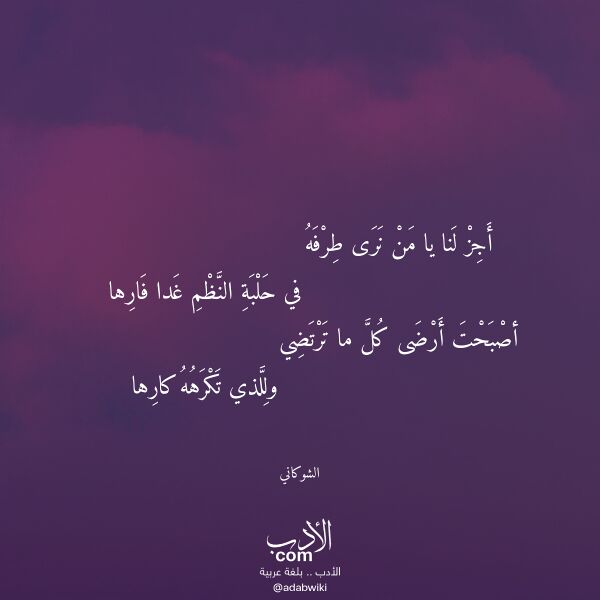 أَجِزْ لَنا يا مَنْ نَرَى طِرْفَهُ
في حَلْبَةِ النَّظْمِ غَدا فَارِها
أصْبَحْتَ أَرْضَى كُلَّ ما تَرْتَضِي
ولِلَّذي تَكْرَهُهُ كارِها
الشوكاني
الأدب
com
الأدب .. بلغة عربية
@adabwiki